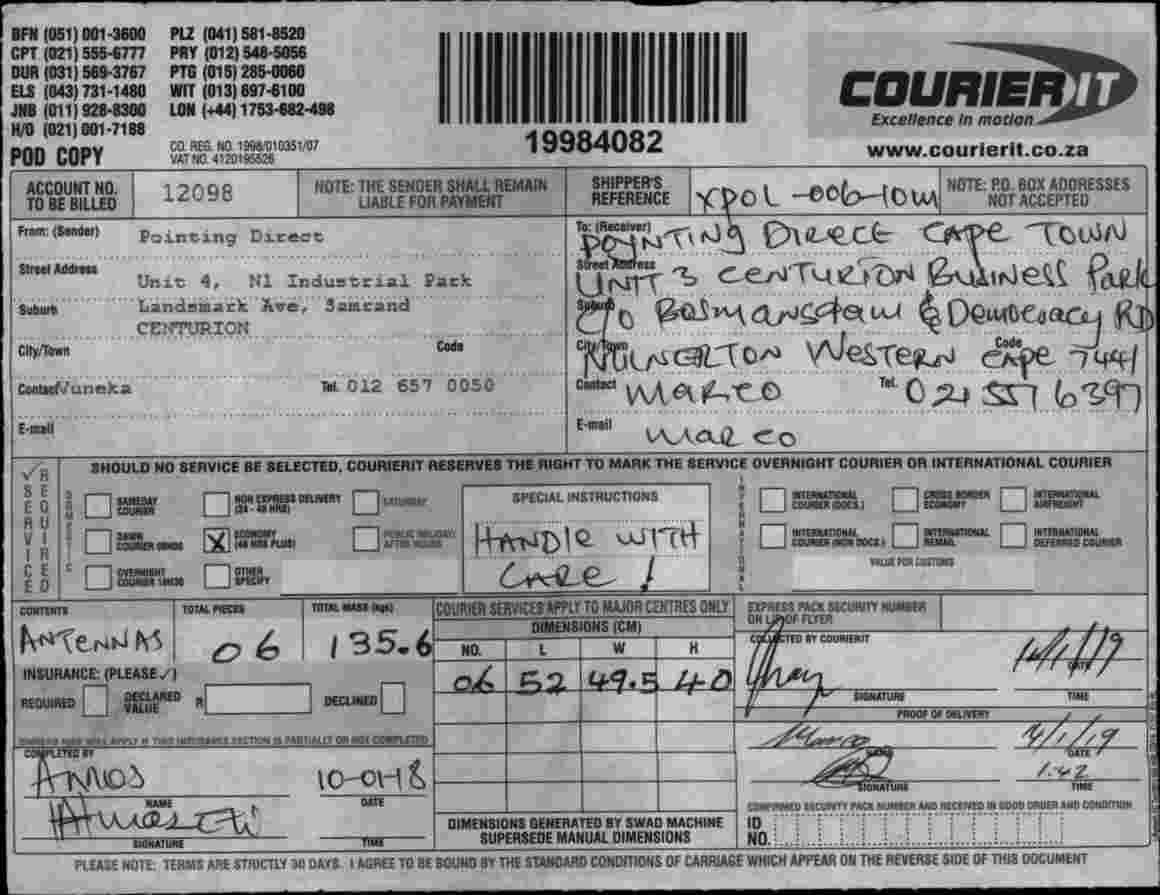 BFN (051) 001-3600 PLZ (041) 581-8520
CPT (021) 555-6777 PRY (012) 548-5056
DUR (031) 569-3767 PTG (015) 285-0060
ELS (043) 731-1480 WIT (013) 697-6100
JNB (011) 928-8300 LON (+44) 1753-682-498
H/O (021) 001-7188
POD COPY
CO. REG. NO. 1998/010351/07
VAT NO. 4120195526
19984082
COURIER IT
Excellence in motion
www.courierit.co.za
ACCOUNT NO. TO BE BILLED 12098
NOTE: THE SENDER SHALL REMAIN LIABLE FOR PAYMENT
SHIPPER'S REFERENCE XPOL-006-10M
NOTE: P.O. BOX ADDRESSES NOT ACCEPTED
From: (Sender) Pointing Direct
Street Address Unit 4, N1 Industrial Park
Suburb Landsmark Ave, Samrand
CENTURION
City/Town Code
Contact Vuneka Tel. 012 657 0050
E-mail
To: (Receiver) POYNTING Direct CAPE TOWN
Street Address UNIT 3 CENTURION Business Park
Suburb C/O Bosmansdam & Democracy RD
City/Town Western Cape Code 7441
Contact Marco Tel. 021 551 6397
E-mail Marco
SHOULD NO SERVICE BE SELECTED, COURIERIT RESERVES THE RIGHT TO MARK THE SERVICE OVERNIGHT COURIER OR INTERNATIONAL COURIER
✓ SERVICE REQUIRED
DOMESTIC
SAMEDAY COURIER
NON EXPRESS DELIVERY (24 - 48 HRS)
SATURDAY
DAWN COURIER
X ECONOMY (48 HRS PLUS)
PUBLIC HOLIDAY/ AFTER HOURS
OVERNIGHT COURIER 10H30
OTHER SPECIFY
SPECIAL INSTRUCTIONS
HANDLE WITH
CARE!
INTERNATIONAL
INTERNATIONAL COURIER (DOCS.)
CROSS BORDER ECONOMY
INTERNATIONAL AIRFREIGHT
INTERNATIONAL COURIER (NON DOCS.)
INTERNATIONAL REMAIL
INTERNATIONAL DEFERRED COURIER
VALUE FOR CUSTOMS
CONTENTS ANTENNAS
TOTAL PIECES 06
TOTAL MASS (kgs) 135.6
INSURANCE: (PLEASE ✓)
REQUIRED DECLARED VALUE R DECLINED
COMPLETED BY
Amos 10-01-18
NAME DATE
SIGNATURE TIME
COURIER SERVICES APPLY TO MAJOR CENTRES ONLY
DIMENSIONS (CM)
NO. L W H
06 52 49.5 40
DIMENSIONS GENERATED BY SWAD MACHINE
SUPERSEDE MANUAL DIMENSIONS
EXPRESS PACK SECURITY NUMBER
ON LIP OF FLYER
COLLECTED BY COURIERIT
DATE
SIGNATURE TIME
PROOF OF DELIVERY
Marco
DATE
1:42
SIGNATURE TIME
CONFIRMED SECURITY PACK NUMBER AND RECEIVED IN GOOD ORDER AND CONDITION
ID NO.
PLEASE NOTE: TERMS ARE STRICTLY 30 DAYS. I AGREE TO BE BOUND BY THE STANDARD CONDITIONS OF CARRIAGE WHICH APPEAR ON THE REVERSE SIDE OF THIS DOCUMENT